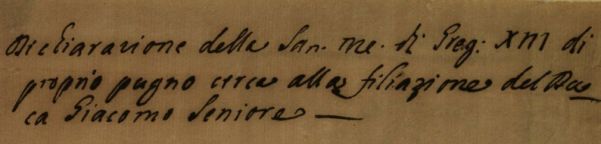 Dichiarazione della San. me. di Greg: XIII di
proprio pugno circa alla filiazione del Du=
ca Giacomo Seniore —